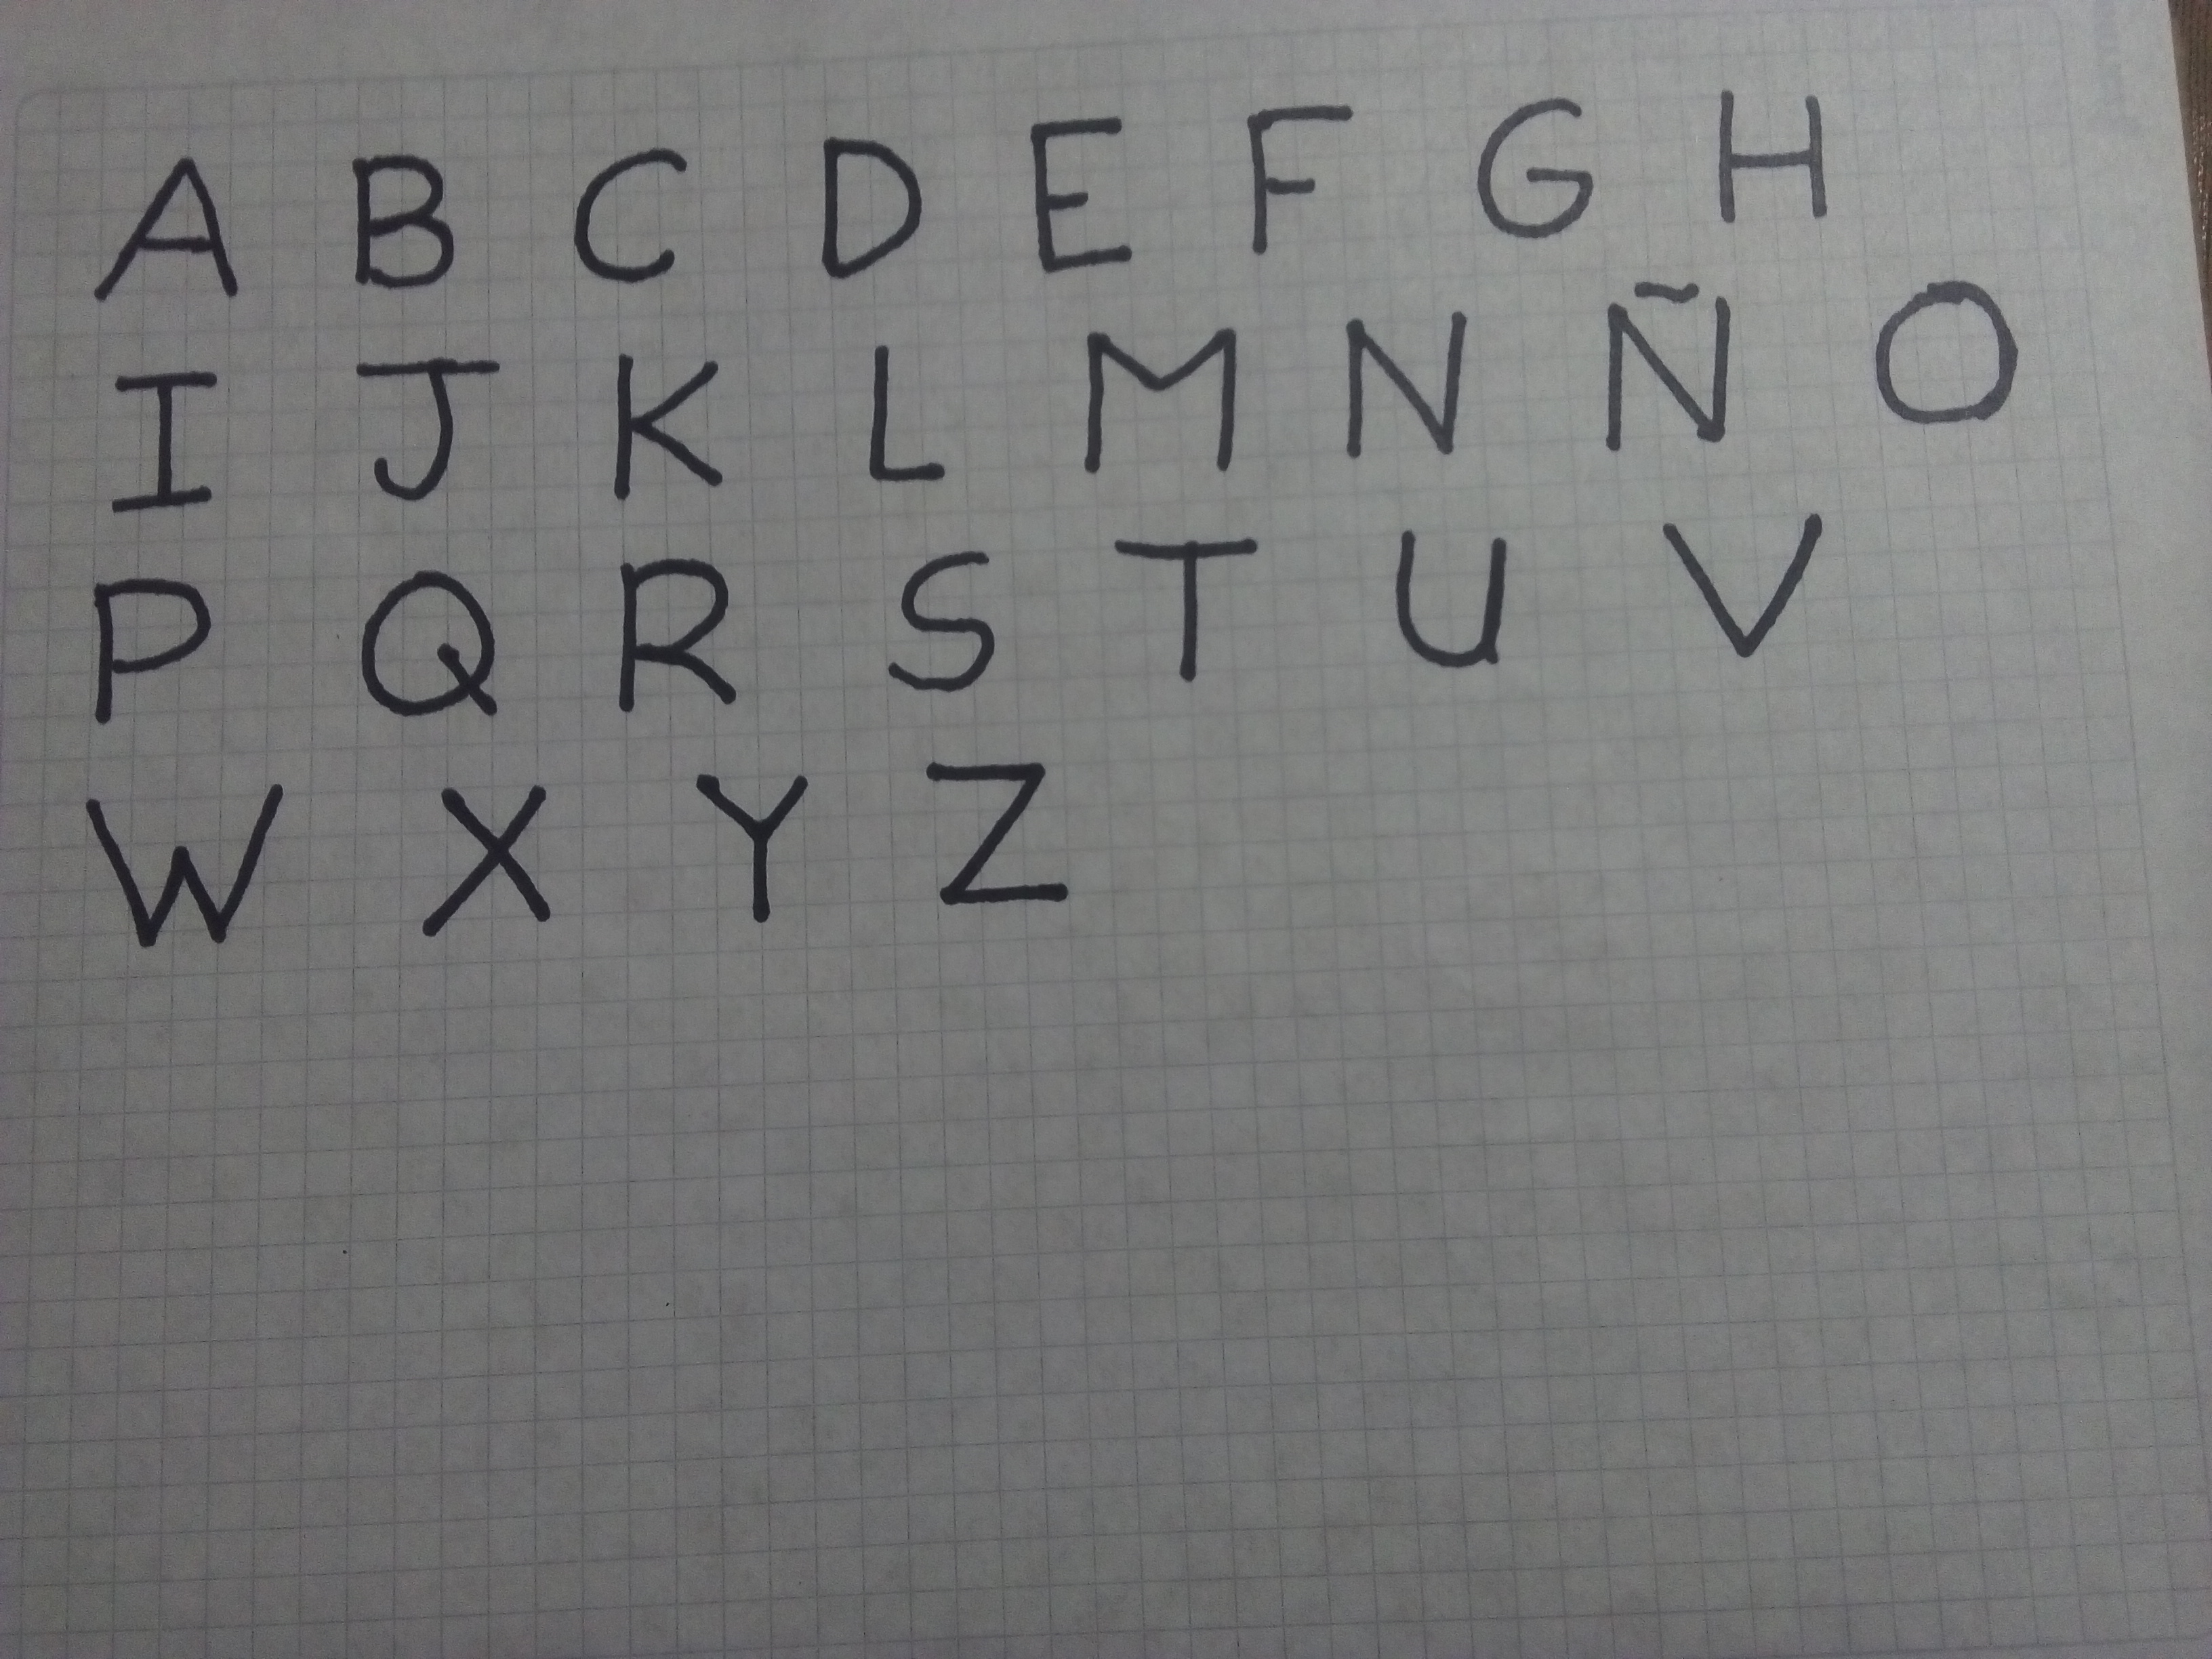 A B C D E F G H
I J K L M N Ñ O
P Q R S T U V
W X Y Z